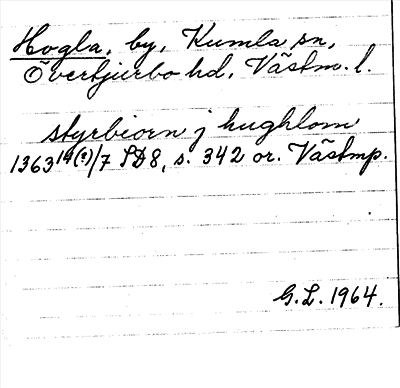 Hogla, by, Kumla sn,
Övertjurbo hd, Västm. l.
styrbiorn j hughlom
1363 19(?)/7 SD 8, s. 342 or. Västmp.
G.L. 1964.